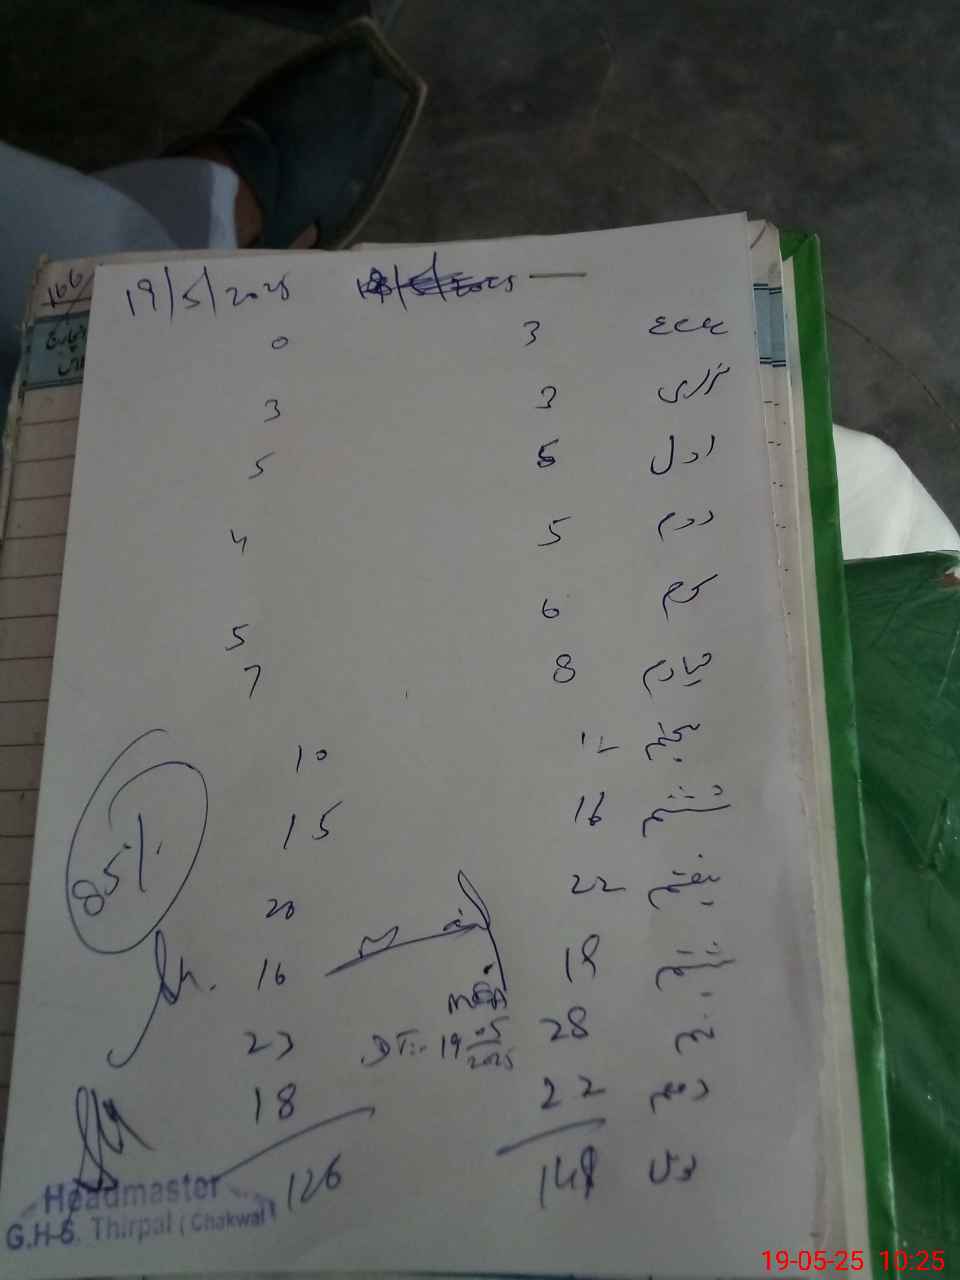 19/5/2025
166
انچارج
3 0
نرسری 3 3
اول 5 5
دوم 5 4
سوم 6 5
چہارم 8 7
پنجم 12 10
ششم 16 15
85%
ہفتم 22 20
ہشتم 19 16
MEA
DT:- 19/05/2025
نہم 28 23
دہم 22 18
149 126
Headmaster
G.H.S. Thirpal (Chakwal)
19-05-25 10:25